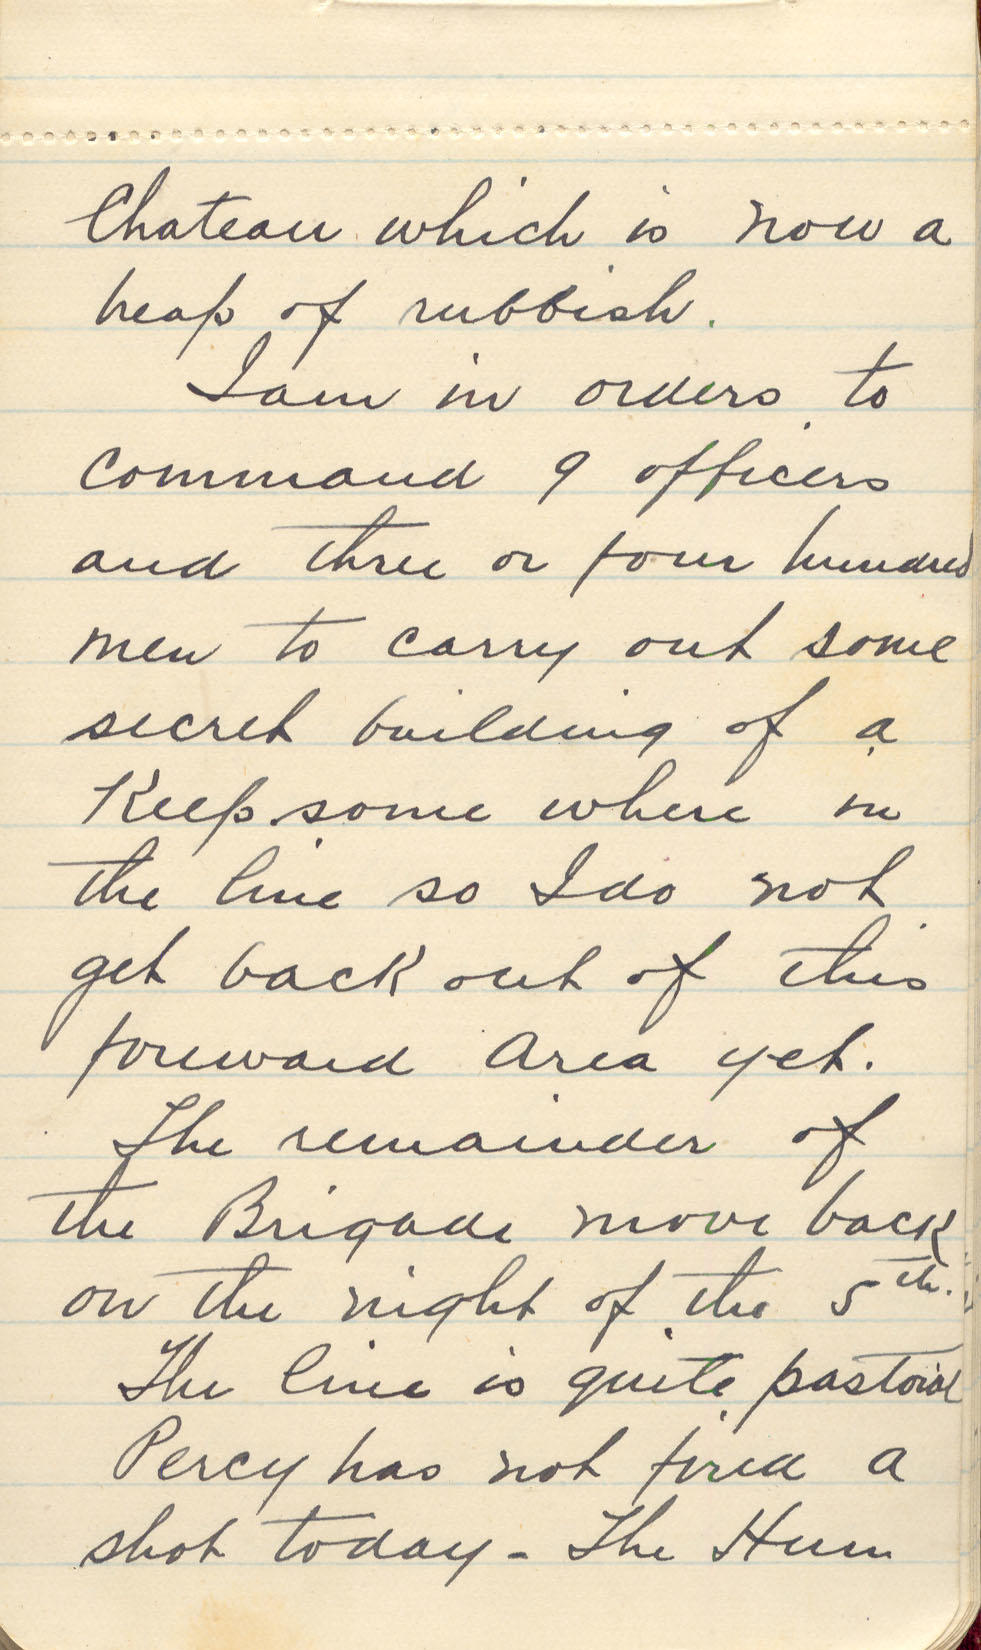 Chateau which is now a
heap of rubbish.
I am in orders to
command 9 officers
and three or four hundred
men to carry out some
secret building of a
Keep some where in
the line so I do not
get back out of this
foreward Area yet.
The remainder of
the Brigade move back
on the night of the 5th.
The line is quite pastoral
Percy has not fired a
shot today - The Hun